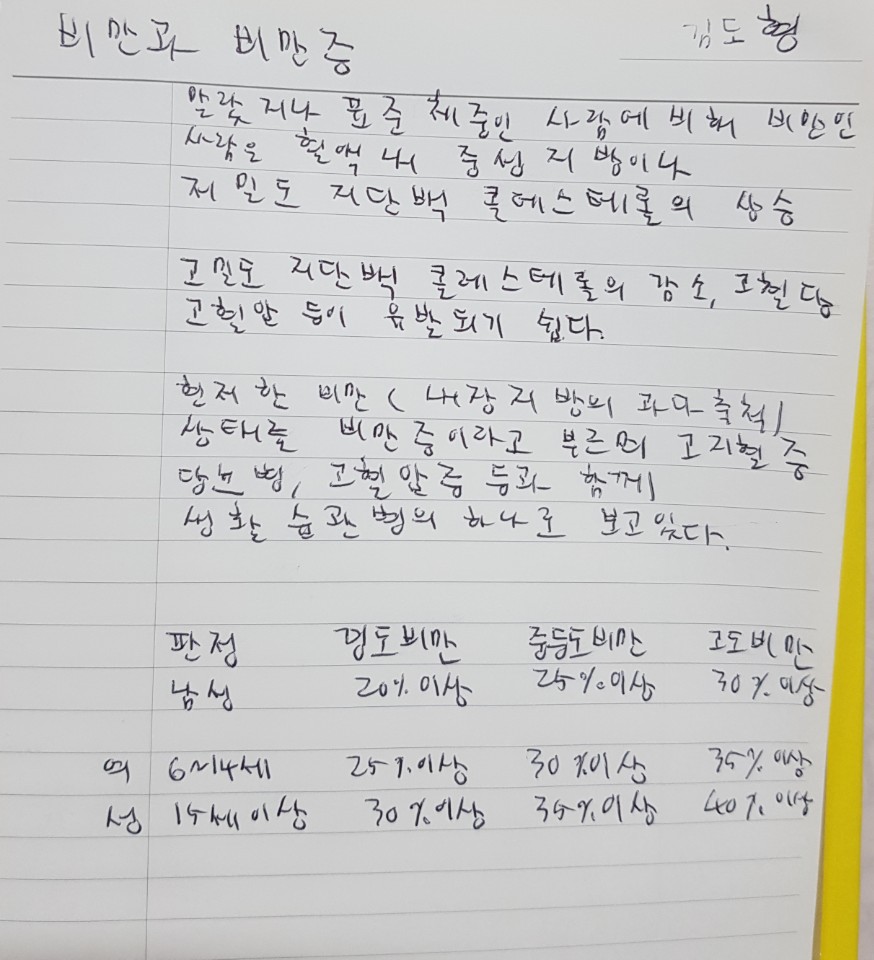 비만과 비만증
김도형
말랐거나 표준 체중인 사람에 비해 비만인
사람은 혈액 내 중성 지방이나
저밀도 지단백 콜레스테롤의 상승
고밀도 지단백 콜레스테롤의 감소, 고혈당
고혈압 등이 유발되기 쉽다.
현저한 비만 (내장지방의 과다축척)
상태를 비만증이라고 부르며 고지혈증
당뇨병, 고혈압증 등과 함께
생활습관병의 하나로 보고있다.
판정 경도비만 중등도비만 고도비만
남성 20% 이상 25% 이상 30% 이상
여 6~14세 25%이상 30%이상 35%이상
성 15세이상 30%이상 35%이상 40%이상